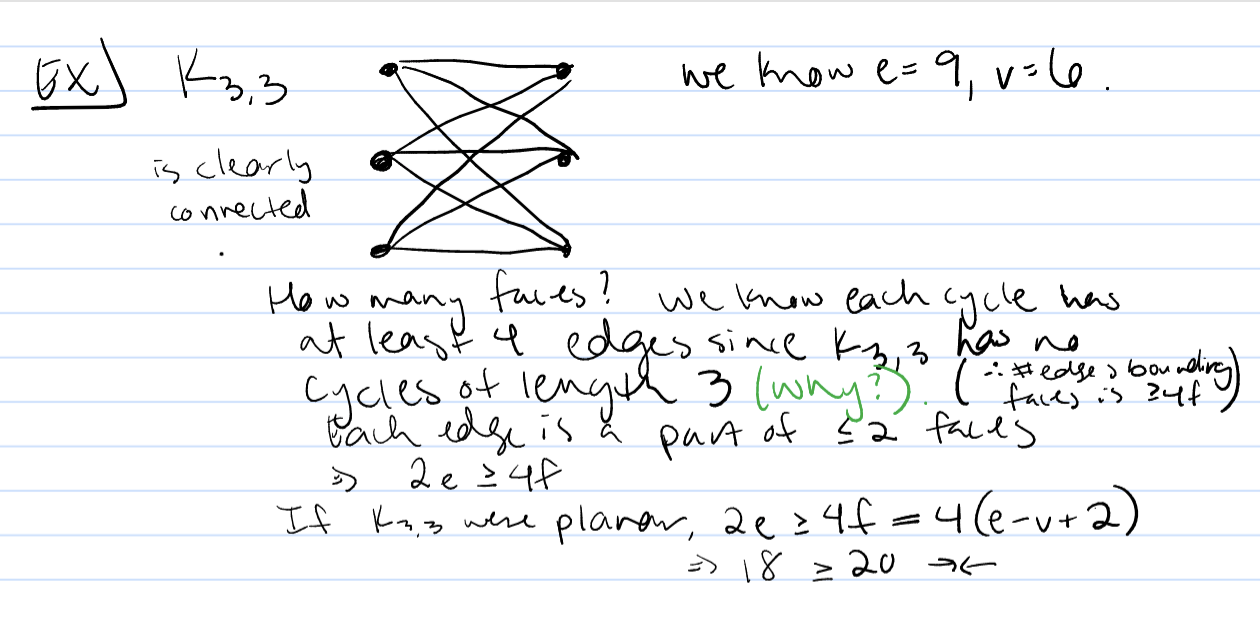 Ex) K₃,₃ we know e=9, v=6.
is clearly
connected
.
How many faces? We know each cycle has
at least 4 edges since K₃,₃ has no
cycles of length 3 (why?). (∴ # edges bounding
faces is ≥4f)
Each edge is a part of ≤2 faces
⇒ 2e ≥ 4f
If K₃,₃ were planar, 2e ≥ 4f = 4(e-v+2)
⇒ 18 ≥ 20 →←